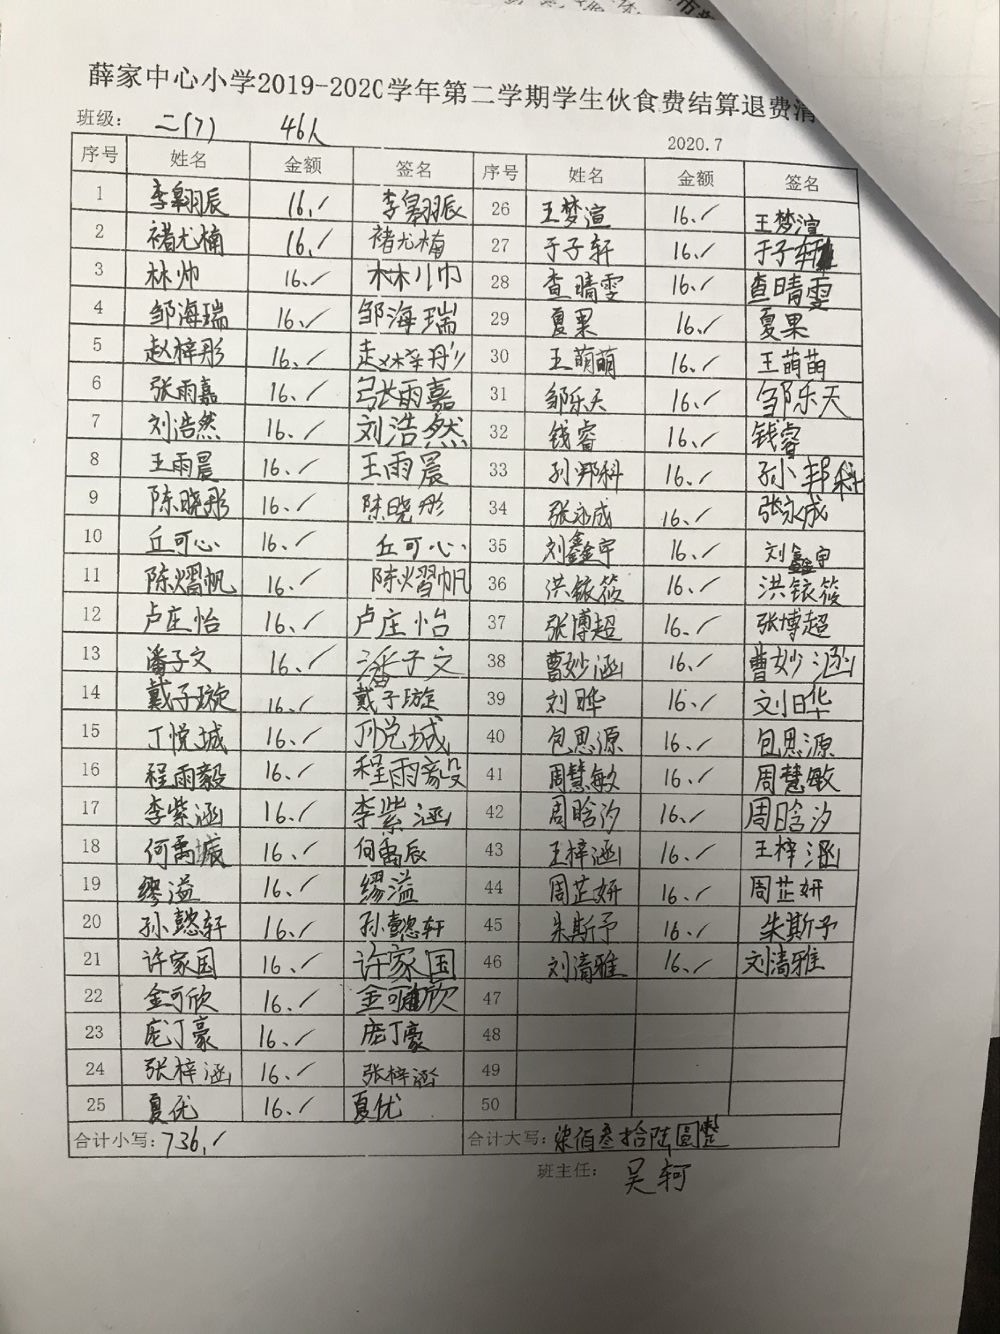 薛家中心小学2019-2020学年第二学期学生伙食费结算退费清
班级： 二(7) 46人
2020.7
序号 姓名 金额 签名 序号 姓名 金额 签名
1 李翱辰 16.✓ 李翱辰 26 王梦渲 16.✓ 王梦渲
2 褚尤楠 16.✓ 褚尤楠 27 于子轩 16.✓ 于子轩
3 林帅 16.✓ 林帅 28 查晴雯 16.✓ 查晴雯
4 邹海瑞 16.✓ 邹海瑞 29 夏果 16.✓ 夏果
5 赵梓彤 16.✓ 赵梓彤 30 王萌萌 16.✓ 王萌萌
6 张雨嘉 16.✓ 张雨嘉 31 邹乐天 16.✓ 邹乐天
7 刘浩然 16.✓ 刘浩然 32 钱睿 16.✓ 钱睿
8 王雨晨 16.✓ 王雨晨 33 孙邦科 16.✓ 孙邦科
9 陈晓彤 16.✓ 陈晓彤 34 张永成 16.✓ 张永成
10 丘可心 16.✓ 丘可心 35 刘鑫宇 16.✓ 刘鑫宇
11 陈熠帆 16.✓ 陈熠帆 36 洪铱筱 16.✓ 洪铱筱
12 卢庄怡 16.✓ 卢庄怡 37 张博超 16.✓ 张博超
13 潘子文 16.✓ 潘子文 38 曹妙涵 16.✓ 曹妙涵
14 戴子璇 16.✓ 戴子璇 39 刘晔 16.✓ 刘晔
15 丁悦城 16.✓ 丁悦城 40 包思源 16.✓ 包思源
16 程雨毅 16.✓ 程雨毅 41 周慧敏 16.✓ 周慧敏
17 李紫涵 16.✓ 李紫涵 42 周晗汐 16.✓ 周晗汐
18 何禹 16.✓ 何禹辰 43 王梓涵 16.✓ 王梓涵
19 缪溢 16.✓ 缪溢 44 周芷妍 16.✓ 周芷妍
20 孙懿轩 16.✓ 孙懿轩 45 朱斯予 16.✓ 朱斯予
21 许家国 16.✓ 许家国 46 刘清雅 16.✓ 刘清雅
22 金可欣 16.✓ 金可欣 47
23 庞丁豪 16.✓ 庞丁豪 48
24 张梓涵 16.✓ 张梓涵 49
25 夏优 16.✓ 夏优 50
合计小写：736.✓ 合计大写：柒佰叁拾陆圆整
班主任： 吴轲